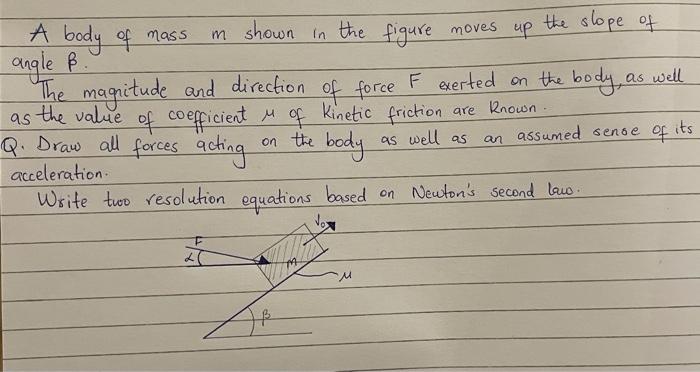 A body of mass m shown in the figure moves up the slope of
angle β.
The magnitude and direction of force F exerted on the body, as well
as the value of coefficient μ of kinetic friction are known.
Q. Draw all forces acting on the body as well as an assumed sense of its
acceleration.
Write two resolution equations based on Newton's second law.
V₀
F
α
m
μ
β